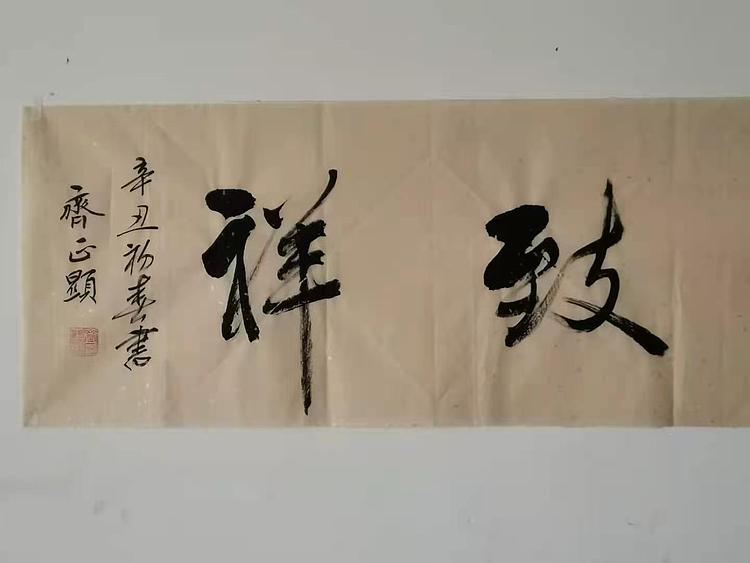 致祥
辛丑初春書
齊正顯